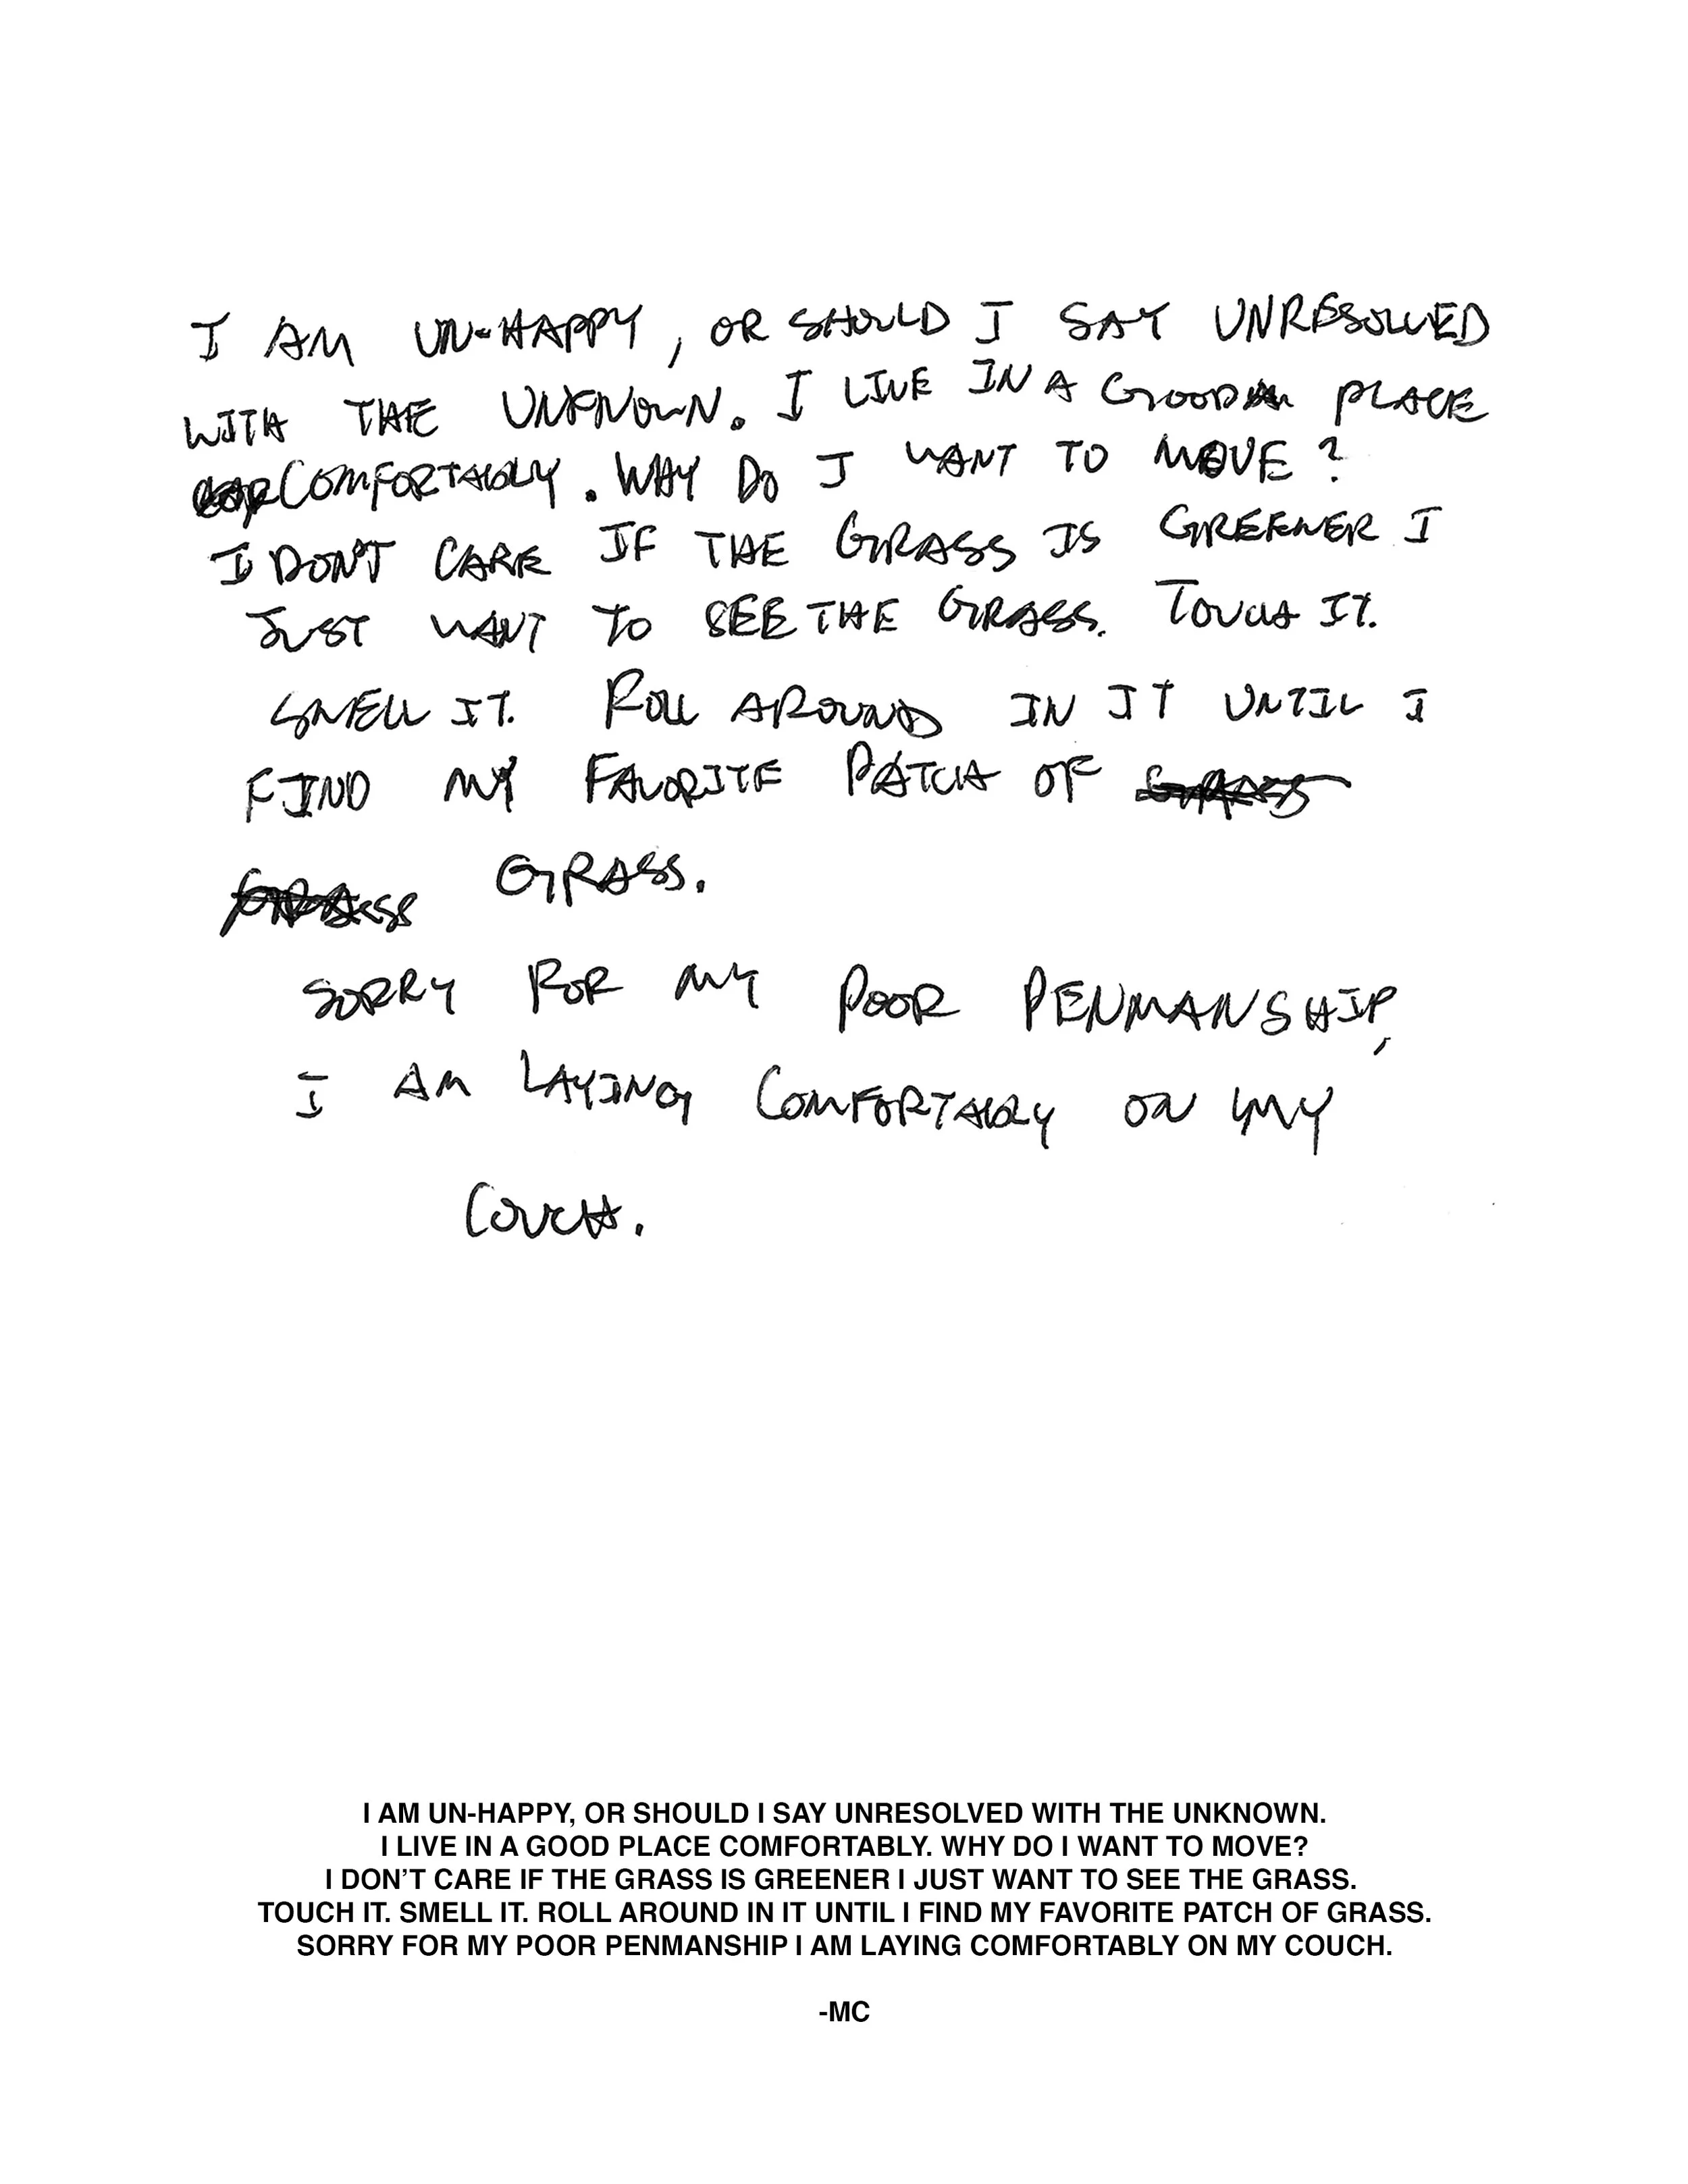 I AM UN-HAPPY, OR SHOULD I SAY UNRESOLVED
WITH THE UNKNOWN. I LIVE IN A GOOD PLACE
COMFORTABLY. WHY DO I WANT TO MOVE?
I DON'T CARE IF THE GRASS IS GREENER I
JUST WANT TO SEE THE GRASS. TOUCH IT.
SMELL IT. ROLL AROUND IN IT UNTIL I
FIND MY FAVORITE PATCH OF GRASS
GRASS GRASS.
SORRY FOR MY POOR PENMANSHIP,
I AM LAYING COMFORTABLY ON MY
COUCH.
I AM UN-HAPPY, OR SHOULD I SAY UNRESOLVED WITH THE UNKNOWN.
I LIVE IN A GOOD PLACE COMFORTABLY. WHY DO I WANT TO MOVE?
I DON’T CARE IF THE GRASS IS GREENER I JUST WANT TO SEE THE GRASS.
TOUCH IT. SMELL IT. ROLL AROUND IN IT UNTIL I FIND MY FAVORITE PATCH OF GRASS.
SORRY FOR MY POOR PENMANSHIP I AM LAYING COMFORTABLY ON MY COUCH.
-MC